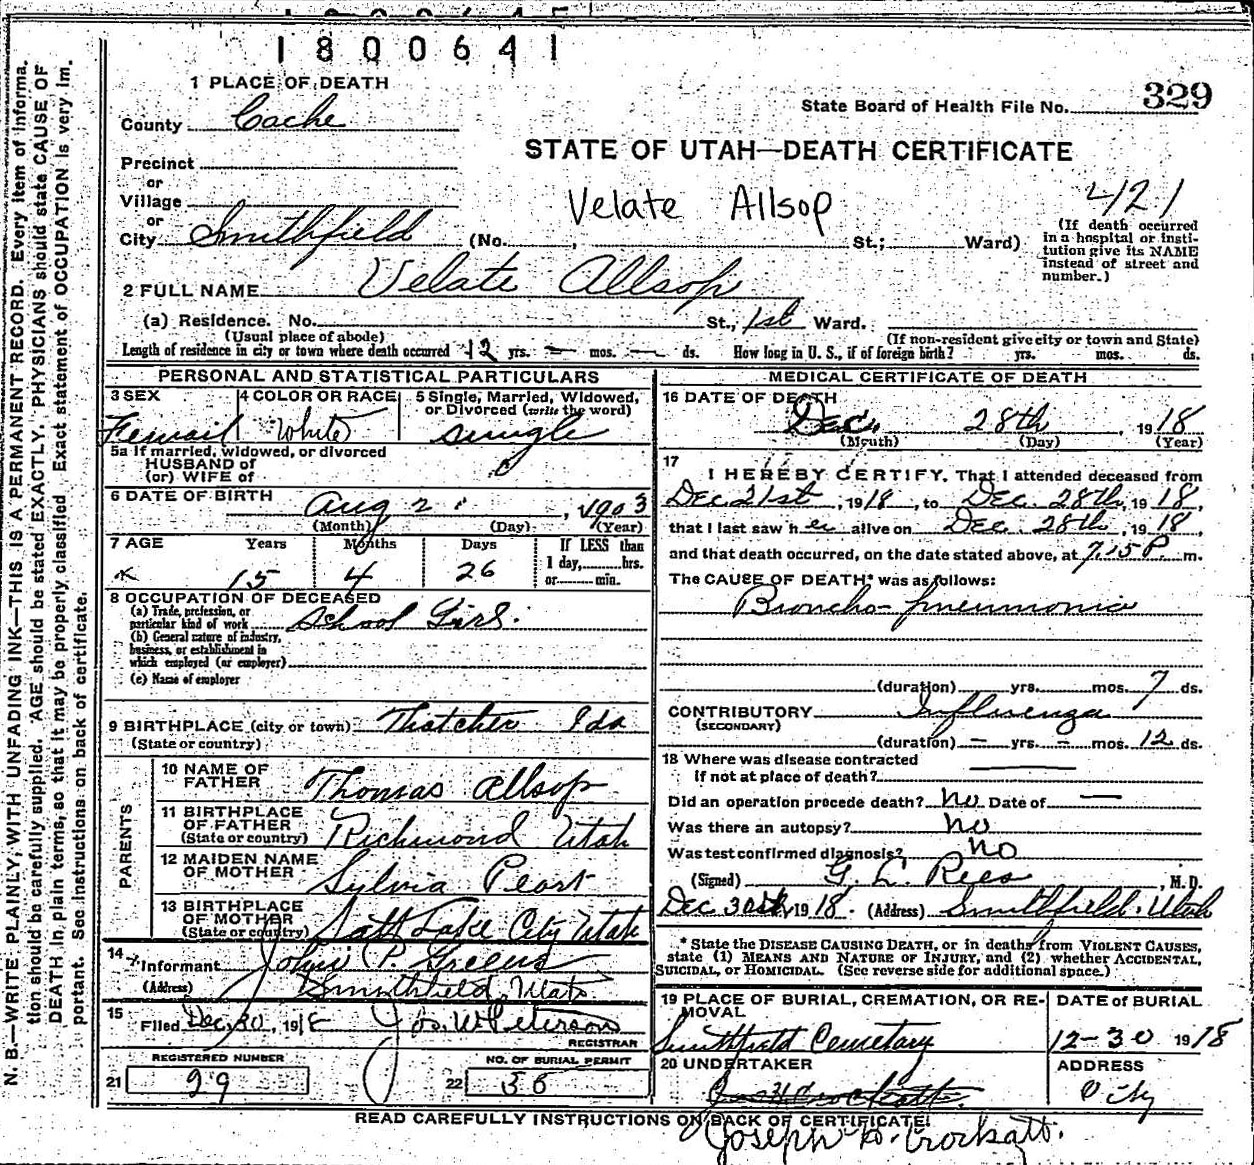 1800641
1 PLACE OF DEATH
329
State Board of Health File No.
County Cache
STATE OF UTAH—DEATH CERTIFICATE
Precinct
or
Village
Velate Allsop
421
or
City Smithfield (No. , St.; Ward)
(If death occurred in a hospital or insti-
tution give its NAME
instead of street and
number.)
2 FULL NAME Velate Allsop
(a) Residence. No. St., 1st Ward.
(Usual place of abode)
(If non-resident give city or town and State)
Length of residence in city or town where death occurred 12 yrs. — mos. — ds. How long in U. S., if of foreign birth? yrs. mos. ds.
PERSONAL AND STATISTICAL PARTICULARS
3 SEX
Femail
4 COLOR OR RACE
White
5 Single, Married, Widowed,
or Divorced (write the word)
single
5a If married, widowed, or divorced
HUSBAND of
(or) WIFE of
6 DATE OF BIRTH Aug 2 , 1903
(Month) (Day) (Year)
7 AGE Years Months Days
15 4 26
If LESS than
1 day, hrs.
or min.
8 OCCUPATION OF DECEASED
(a) Trade, profession, or
particular kind of work School Girl.
(b) General nature of industry,
business, or establishment in
which employed (or employer)
(c) Name of employer
9 BIRTHPLACE (city or town) Thatcher Ida
(State or country)
PARENTS
10 NAME OF
FATHER Thomas Allsop
11 BIRTHPLACE
OF FATHER
(State or country) Richmond Utah
12 MAIDEN NAME
OF MOTHER Sylvia Peart
13 BIRTHPLACE
OF MOTHER
(State or country) Salt Lake City Utah
14
Informant John P. Greene
(Address) Smithfield, Utah
15
Filed Dec. 30, 1918 Jos. W. Peterson
REGISTRAR
REGISTERED NUMBER
21 29
NO. OF BURIAL PERMIT
22 38
MEDICAL CERTIFICATE OF DEATH
16 DATE OF DEATH
Dec. 28th, 1918
(Month) (Day) (Year)
17
I HEREBY CERTIFY, That I attended deceased from
Dec 21st, 1918, to Dec. 28th, 1918,
that I last saw her alive on Dec. 28th, 1918
and that death occurred, on the date stated above, at 7.15 P. m.
The CAUSE OF DEATH* was as follows:
Broncho-pneumonia
(duration) yrs. mos. 7 ds.
CONTRIBUTORY Influenza
(SECONDARY)
(duration) — yrs. — mos. 12 ds.
18 Where was disease contracted
if not at place of death?
Did an operation precede death? no Date of —
Was there an autopsy? no
Was test confirmed diagnosis? no
(Signed) G. L. Rees, M.D.
Dec 30th, 1918. (Address) Smithfield, Utah
* State the DISEASE CAUSING DEATH, or in deaths from VIOLENT CAUSES,
state (1) MEANS AND NATURE OF INJURY, and (2) whether ACCIDENTAL,
SUICIDAL, or HOMICIDAL. (See reverse side for additional space.)
19 PLACE OF BURIAL, CREMATION, OR RE-
MOVAL
Smithfield Cemetary
DATE of BURIAL
12-30 1918
20 UNDERTAKER
ADDRESS
City
READ CAREFULLY INSTRUCTIONS ON BACK OF CERTIFICATE.
Joseph H. Crockatt.
N. B.—WRITE PLAINLY, WITH UNFADING INK—THIS IS A PERMANENT RECORD. Every item of informa-
tion should be carefully supplied. AGE should be stated EXACTLY. PHYSICIANS should state CAUSE OF
DEATH in plain terms, so that it may be properly classified. Exact statement of OCCUPATION is very im-
portant. See instructions on back of certificate.